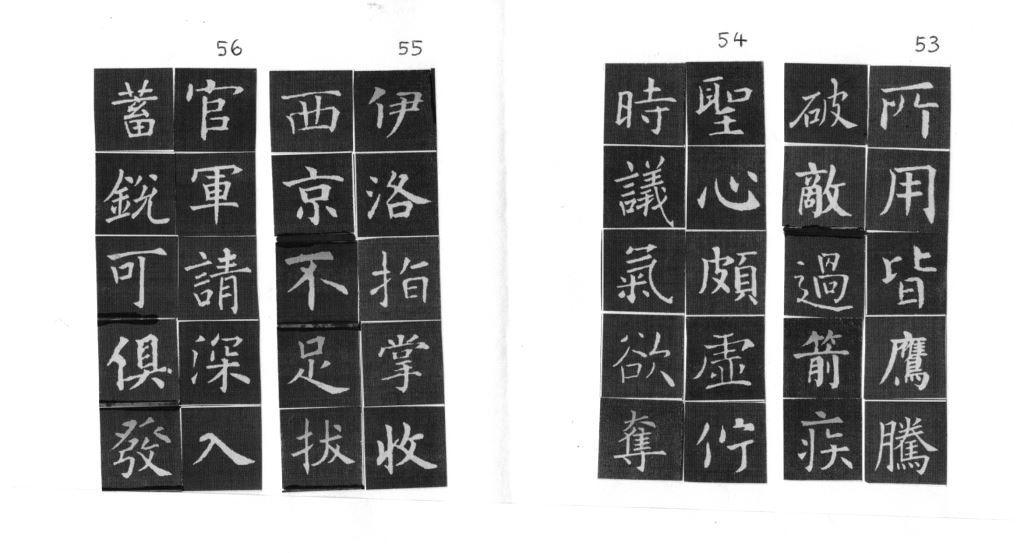 53
所用皆鷹騰
破敵過箭疾
54
聖心頗虛佇
時議氣欲奪
55
伊洛指掌收
西京不足拔
56
官軍請深入
蓄銳可俱發